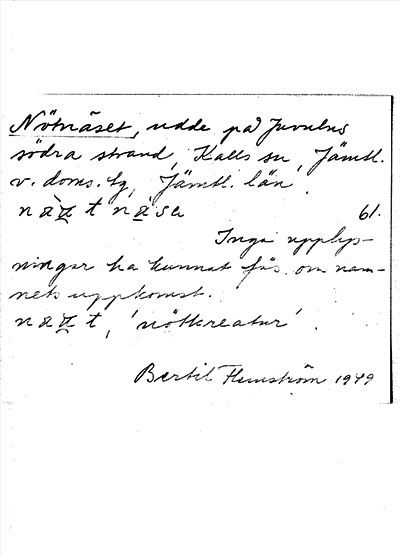 Nötnäset, udde på Juvulns
södra strand, Kalls sn, Jämtl.
v. doms. tg, Jämtl. län.
nä̀ä̠t nä̠sa 61.
Inga upplys-
ningar ha kunnat fås om nam-
nets uppkomst.
nää̠t, 'nötkreatur'.
Bertil Flemström 1949